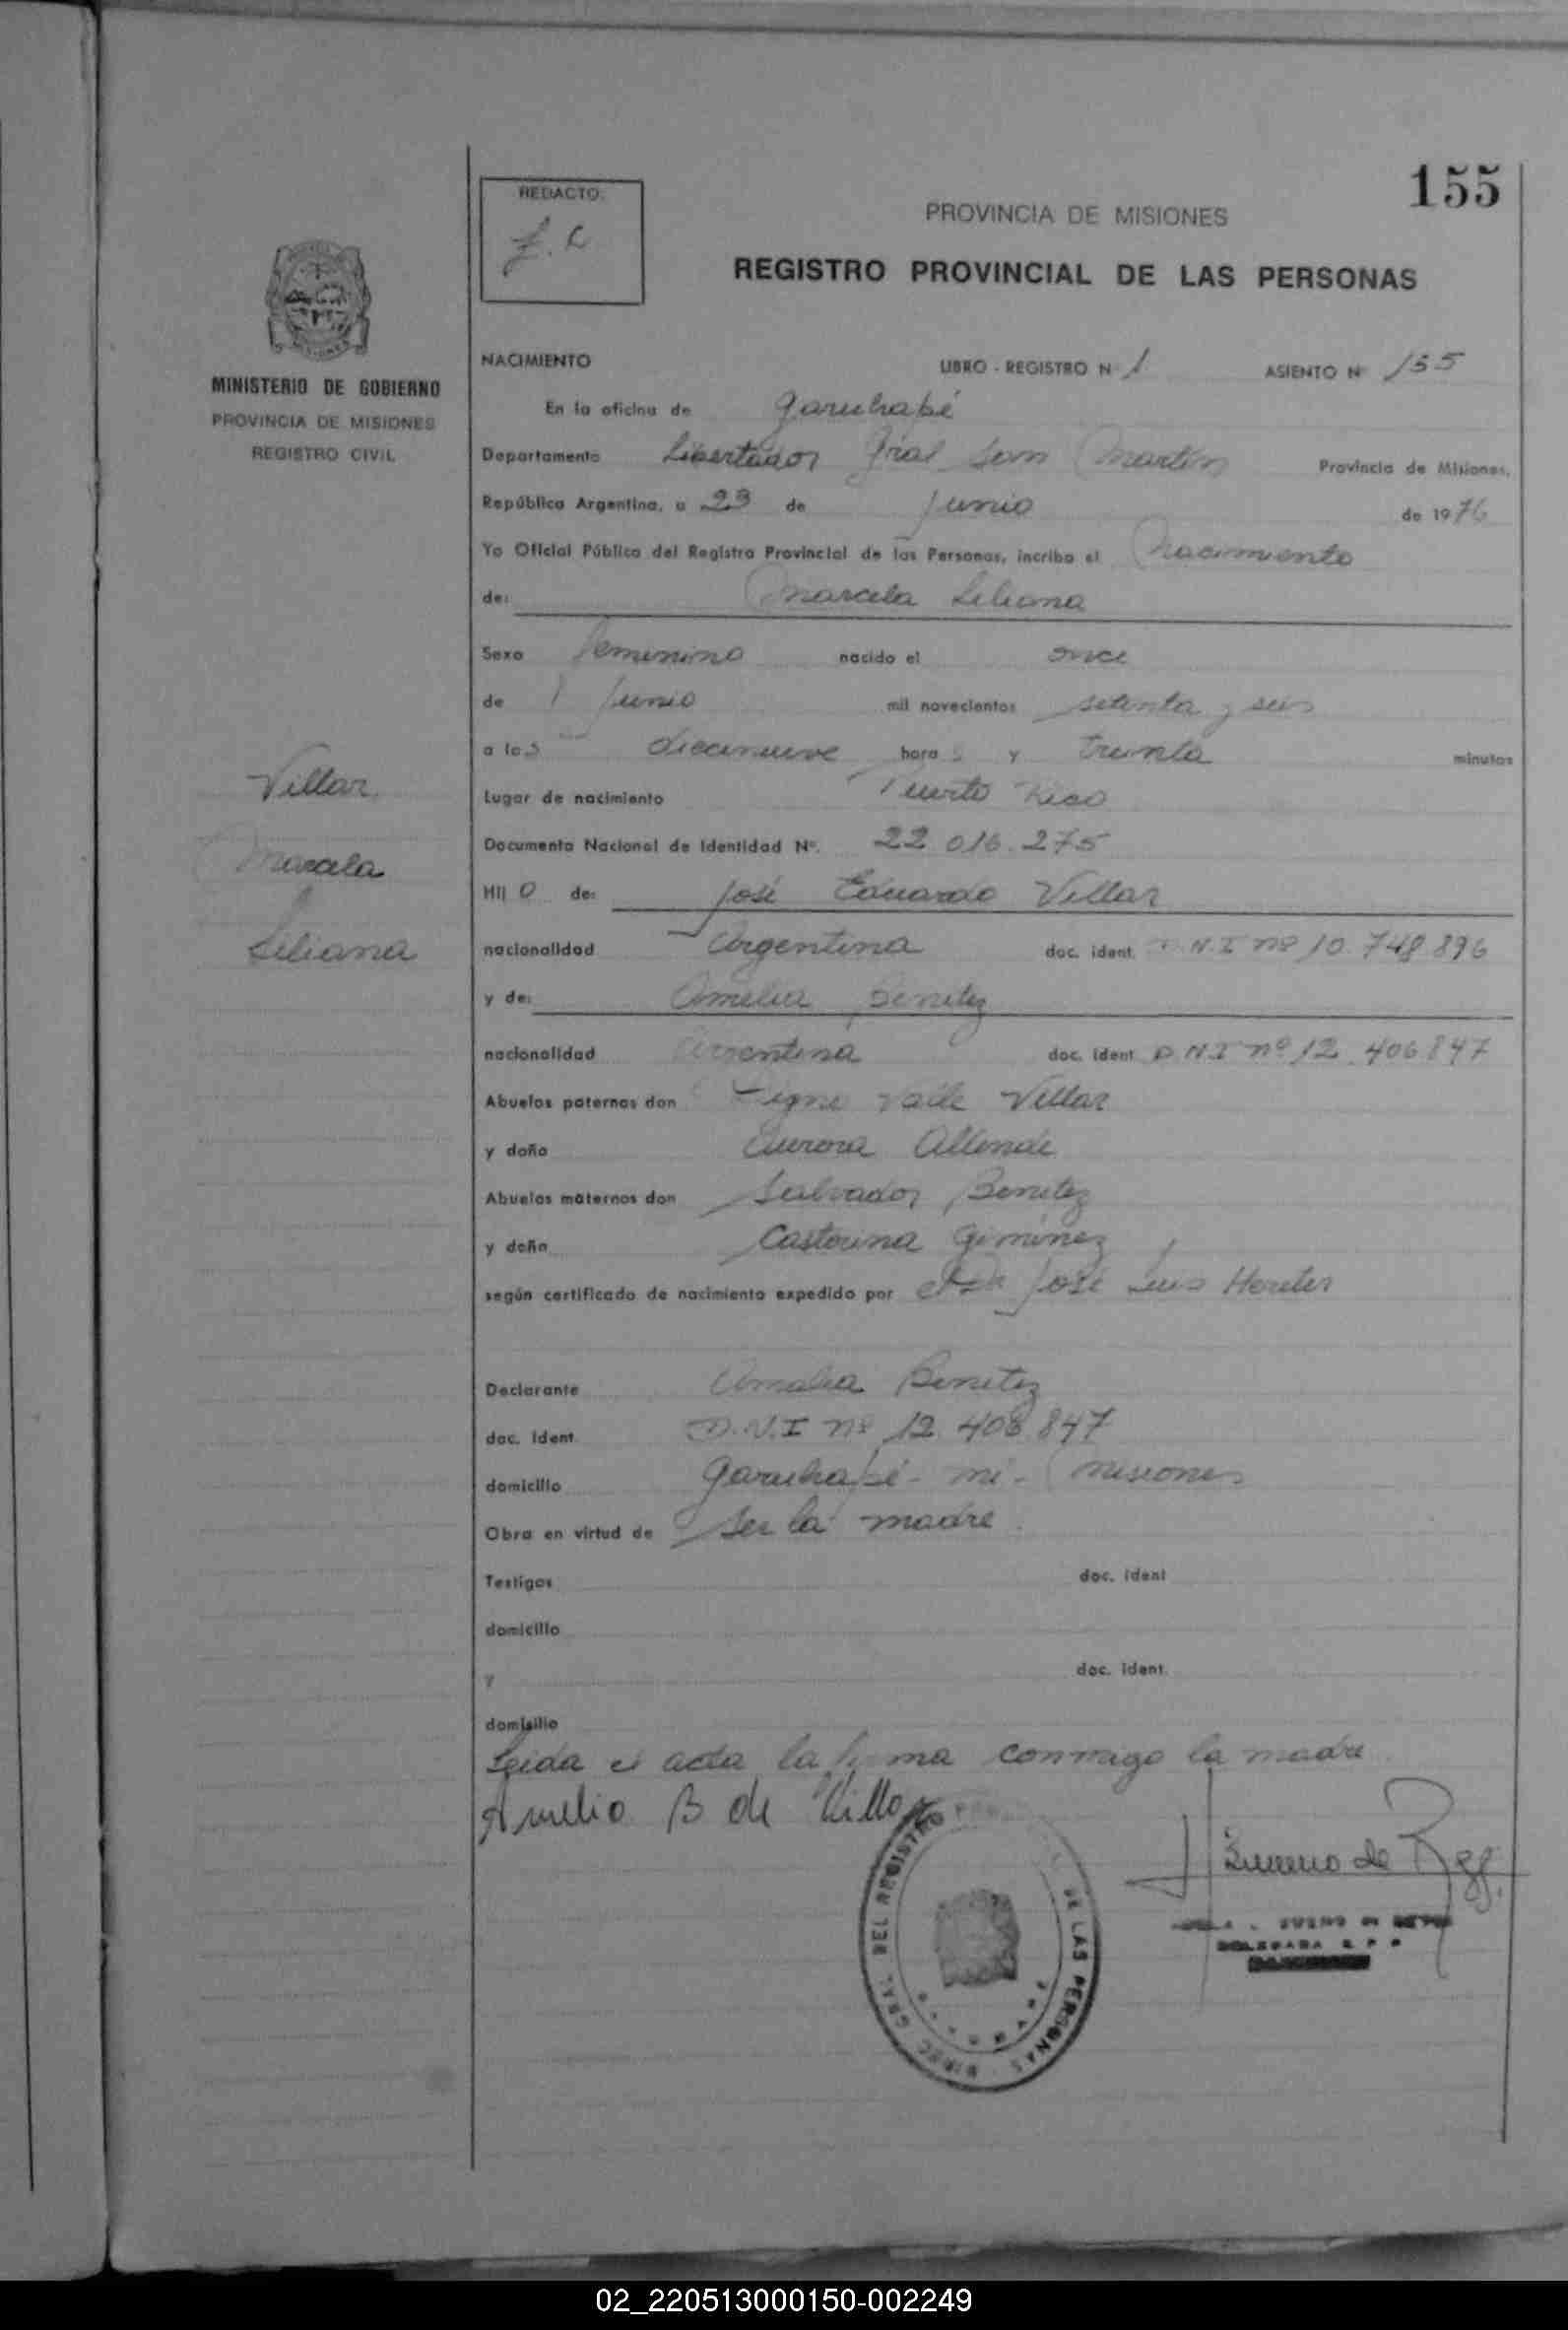 155
REDACTO:
f. c
PROVINCIA DE MISIONES
REGISTRO PROVINCIAL DE LAS PERSONAS
MINISTERIO DE GOBIERNO
PROVINCIA DE MISIONES
REGISTRO CIVIL
NACIMIENTO LIBRO - REGISTRO N 1 ASIENTO Nº 155
En la oficina de Garuhapé
Departamento Libertador Gral San Martín Provincia de Misiones,
República Argentina, a 23 de Junio de 1976
Yo Oficial Público del Registro Provincial de las Personas, incribo el Nacimiento
de: Marcela Liliana
Sexo Femenino nacido el once
de Junio mil novecientos setenta y seis
a las diecinueve hora s y treinta minutos
Villar
Marcela
Liliana
Lugar de nacimiento Puerto Rico
Documento Nacional de Identidad Nº. 22 016.275
Hij o de: José Eduardo Villar
nacionalidad Argentina doc. ident. D.N.I nº 10.748 896
y de: Amelia Benitez
nacionalidad Argentina doc. ident D.N.I nº 12.406 847
Abuelos paternos don Valle Villar
y doña Aurora Allende
Abuelos maternos don Salvador Benitez
y doña Castorina Giminez
según certificado de nacimiento expedido por el Dr José Luis
Declarante Amalia Benitez
doc. Ident D.N.I nº 12.406 847
domicilio Garuhapé - mí - Misiones
Obra en virtud de Ser la madre
Testigos doc. ident
domicilio
y doc. ident.
domisilio
Leida el acta la firma conmigo la madre
Amelia B de Villar
DIREC. GRAL. DEL REGISTRO DE LAS PERSONAS
Bueno de
DELEGADA R P P
02_220513000150-002249